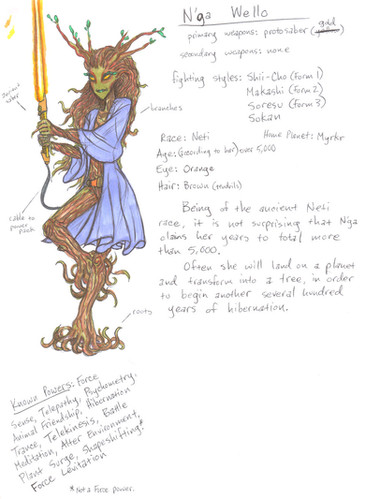 N'ga Wello
primary weapons: protosaber (gold
secondary weapons: none
fighting styles: Shii-Cho (Form 1)
Makashi (Form 2)
Soresu (Form 3)
Sokan
ancient saber
branches
Race: Neti
Home Planet: Myrkr
Age: (according to her) over 5,000
Eye: Orange
Hair: Brown (tendrils)
cable to
power
pack
Being of the ancient Neti
race, it is not surprising that N'ga
claims her years to total more
than 5,000.
Often she will land on a planet
and transform into a tree, in order
to begin another several hundred
years of hibernation.
roots
Known Powers: Force
Sense, Telepathy, Psychometry,
Animal Friendship, Hibernation
Trance, Telekinesis, Battle
Meditation, Alter Environment,
Plant Surge, Shapeshifting*
Force Levitation
*Not a Force power.